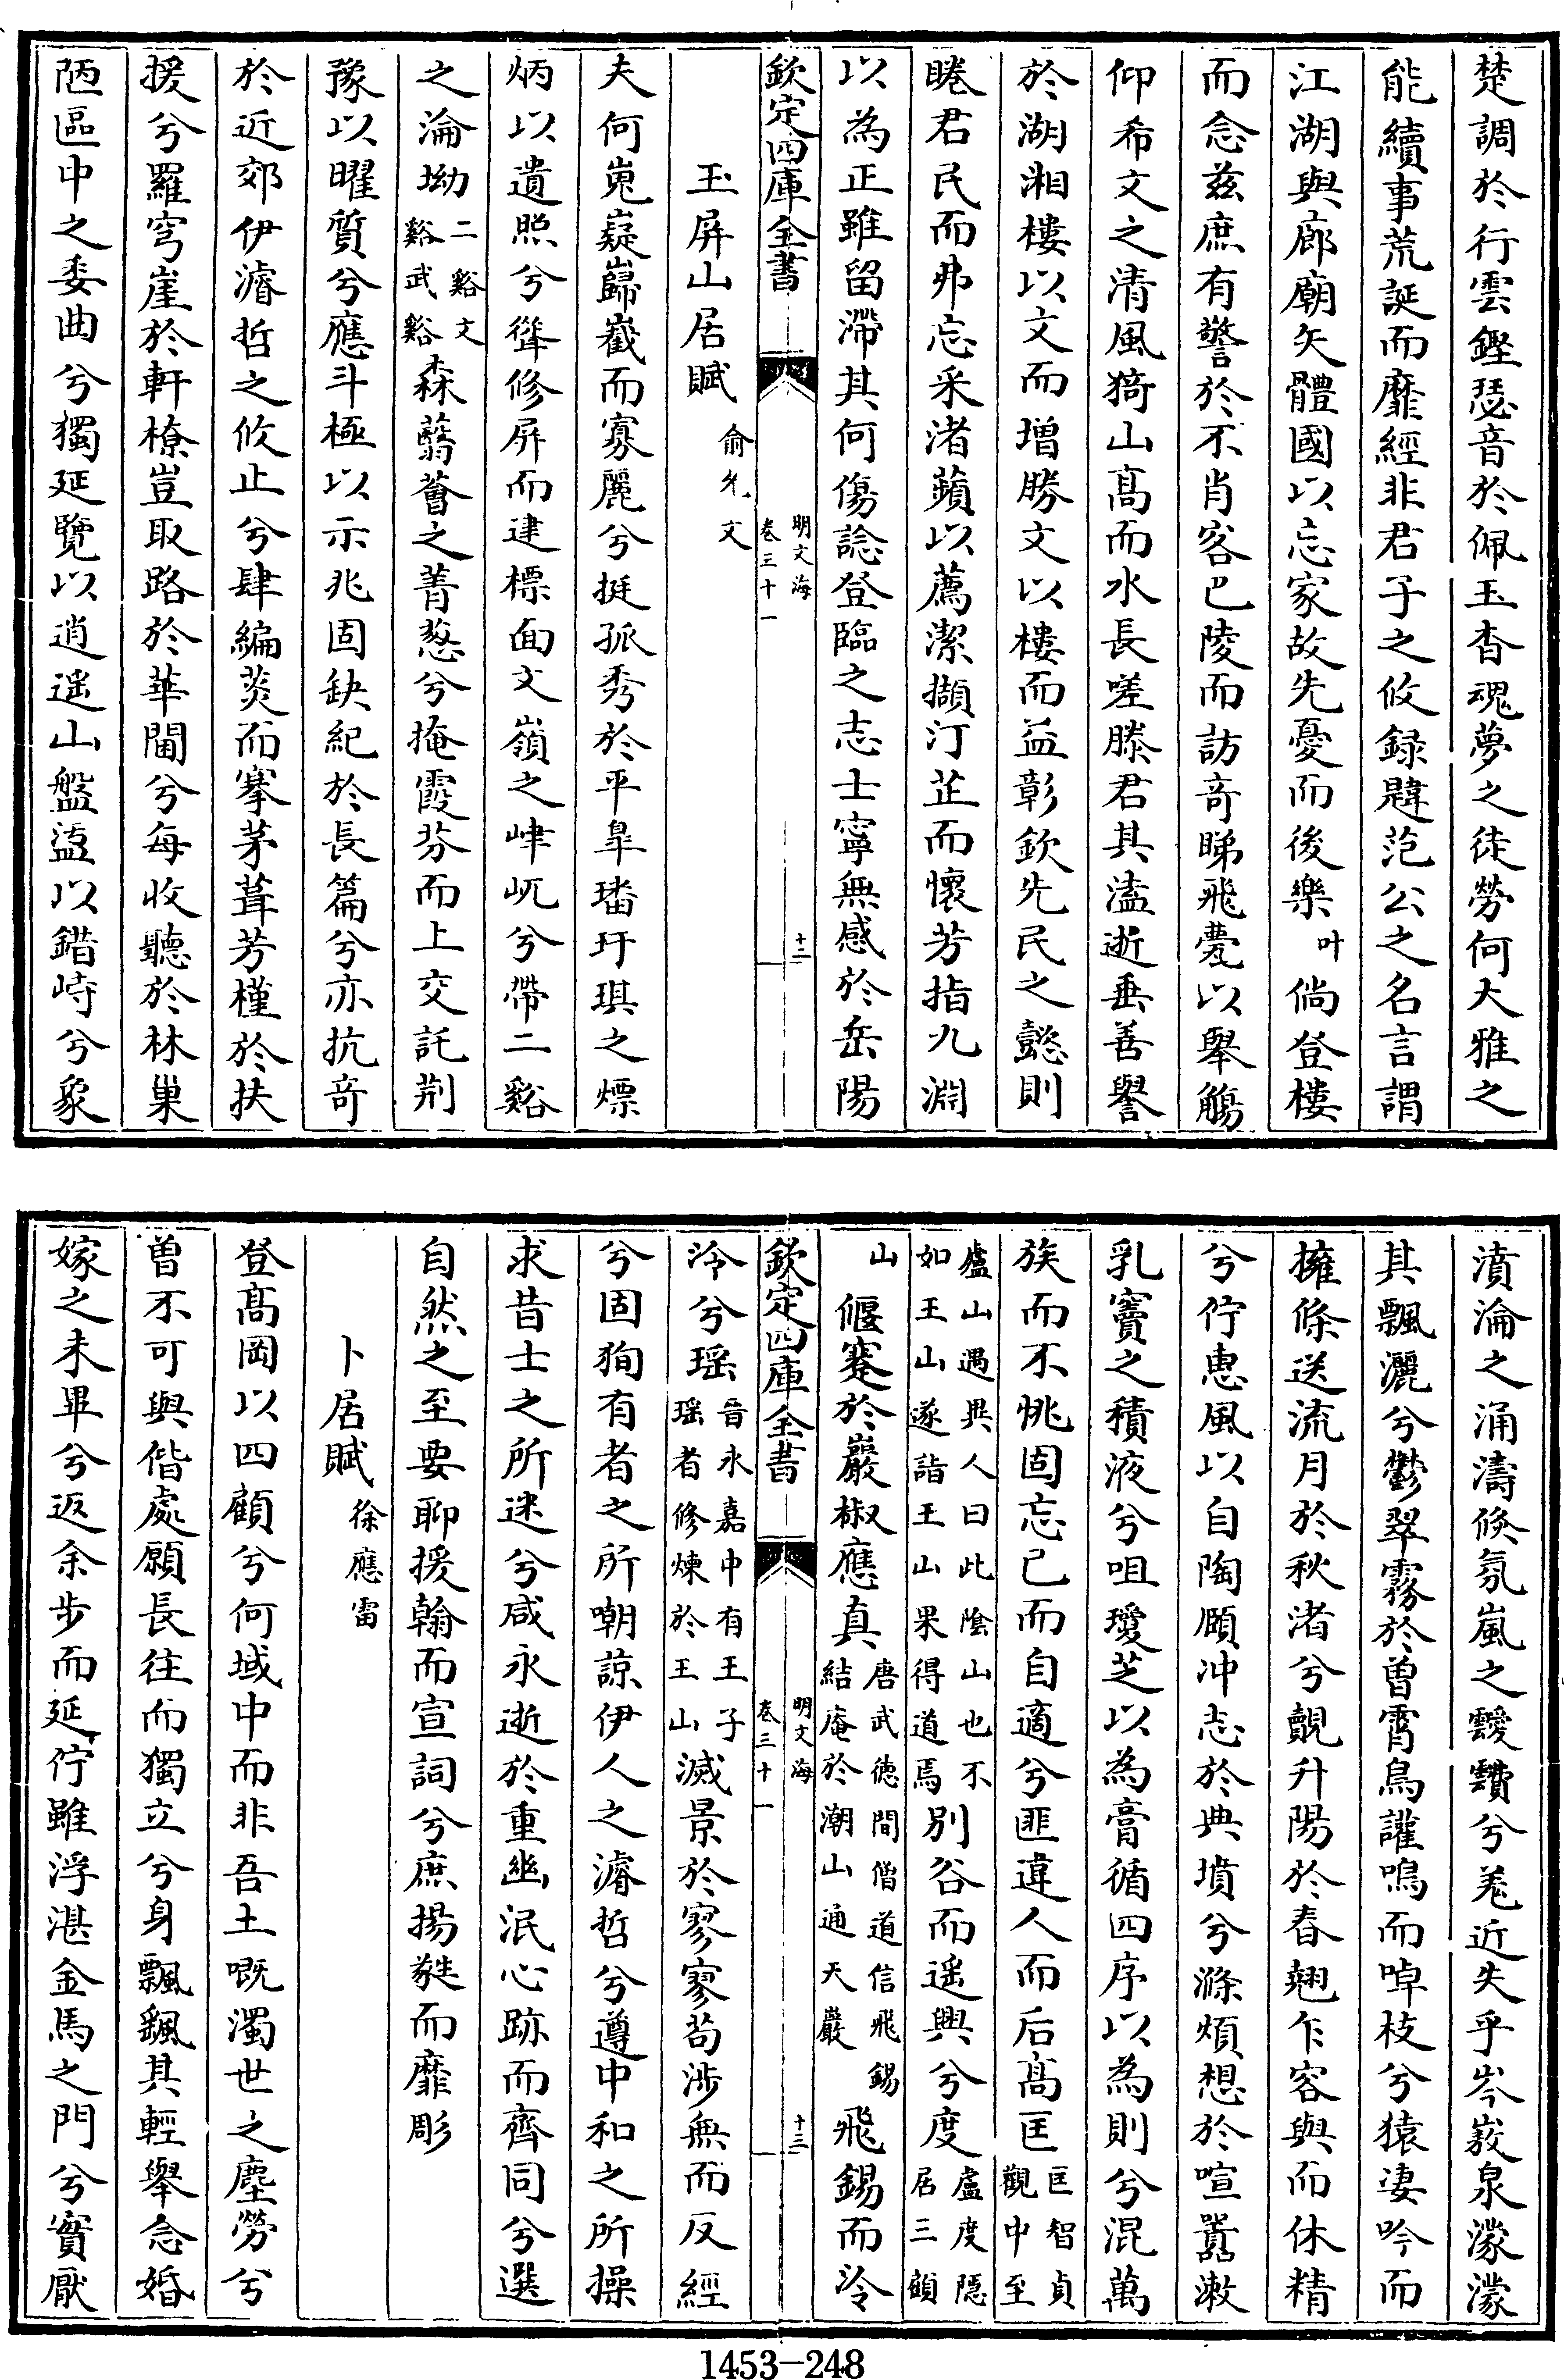 楚調於行雲鏗瑟音於佩玉杳魂夢之徒勞何大雅之
能續事荒誕而靡經非君子之攸録韙范公之名言謂
江湖與廊廟矢體國以忘家故先憂而後樂叶倘登樓
而念茲庶有警於不肖客巴陵而訪奇睇飛甍以舉觴
仰希文之清風猗山髙而水長嗟滕君其溘逝垂善譽
於湖湘樓以文而增勝文以樓而益彰欽先民之懿則
睠君民而弗忘采渚蘋以薦潔擷汀芷而懷芳指九淵
以為正雖留滯其何傷諗登臨之志士寧無感於岳陽
欽定四庫全書 明文海 卷三十一 十二
玉屏山居賦 俞允文
夫何嵬嶷巋巀而寡麗兮挺孤秀於平臯璠玗琪之熛
炳以遺照兮聳修屏而建標面文嶺之嵂屼兮帶二谿
之淪坳二谿文谿武谿森蘙薈之菁葱兮掩霞芬而上交託荆
豫以曜質兮應斗極以示兆固缺紀於長篇兮亦抗奇
於近郊伊濬哲之攸止兮肆編茭而搴茅葺芳槿於扶
援兮羅穹崖於軒橑豈取路於華閫兮每收聽於林巢
陋區中之委曲兮獨延覽以逍遥山盤盓以錯峙兮象
濆淪之涌濤倏氛嵐之靉靅兮羌近失乎岑嶅泉濛濛
其飄灑兮鬱翠霧於曽霄鳥讙鳴而啅枝兮猿淒吟而
擁條送流月於秋渚兮覿升陽於春翹乍容與而休精
兮佇惠風以自陶頤冲志於典墳兮滌煩想於喧囂漱
乳竇之積液兮咀瓊芝以為膏循四序以為則兮混萬
族而不恌固忘已而自適兮匪違人而后髙匡匡智貞觀中至
盧山遇異人曰此陰山也不如王山遂詣王山果得道焉别谷而遥興兮度盧度隱居三顧
山偃蹇於巖椒應真唐武徳間僧道信飛錫結庵於潮山通天巖飛錫而泠
欽定四庫全書 明文海 卷三十一 十三
泠兮瑶晉永嘉中有王子瑶者修煉於王山滅景於寥寥苟渉無而反經
兮固狥有者之所嘲諒伊人之濬哲兮遵中和之所操
求昔士之所迷兮咸永逝於重幽泯心跡而齊同兮選
自然之至要聊援翰而宣詞兮庶揚蕤而靡彫
卜居賦 徐應雷
登髙岡以四顧兮何域中而非吾土嘅濁世之塵勞兮
曽不可與偕處願長往而獨立兮身飄颻其輕舉念婚
嫁之未畢兮返余步而延佇雖浮湛金馬之門兮實厭
1453-248